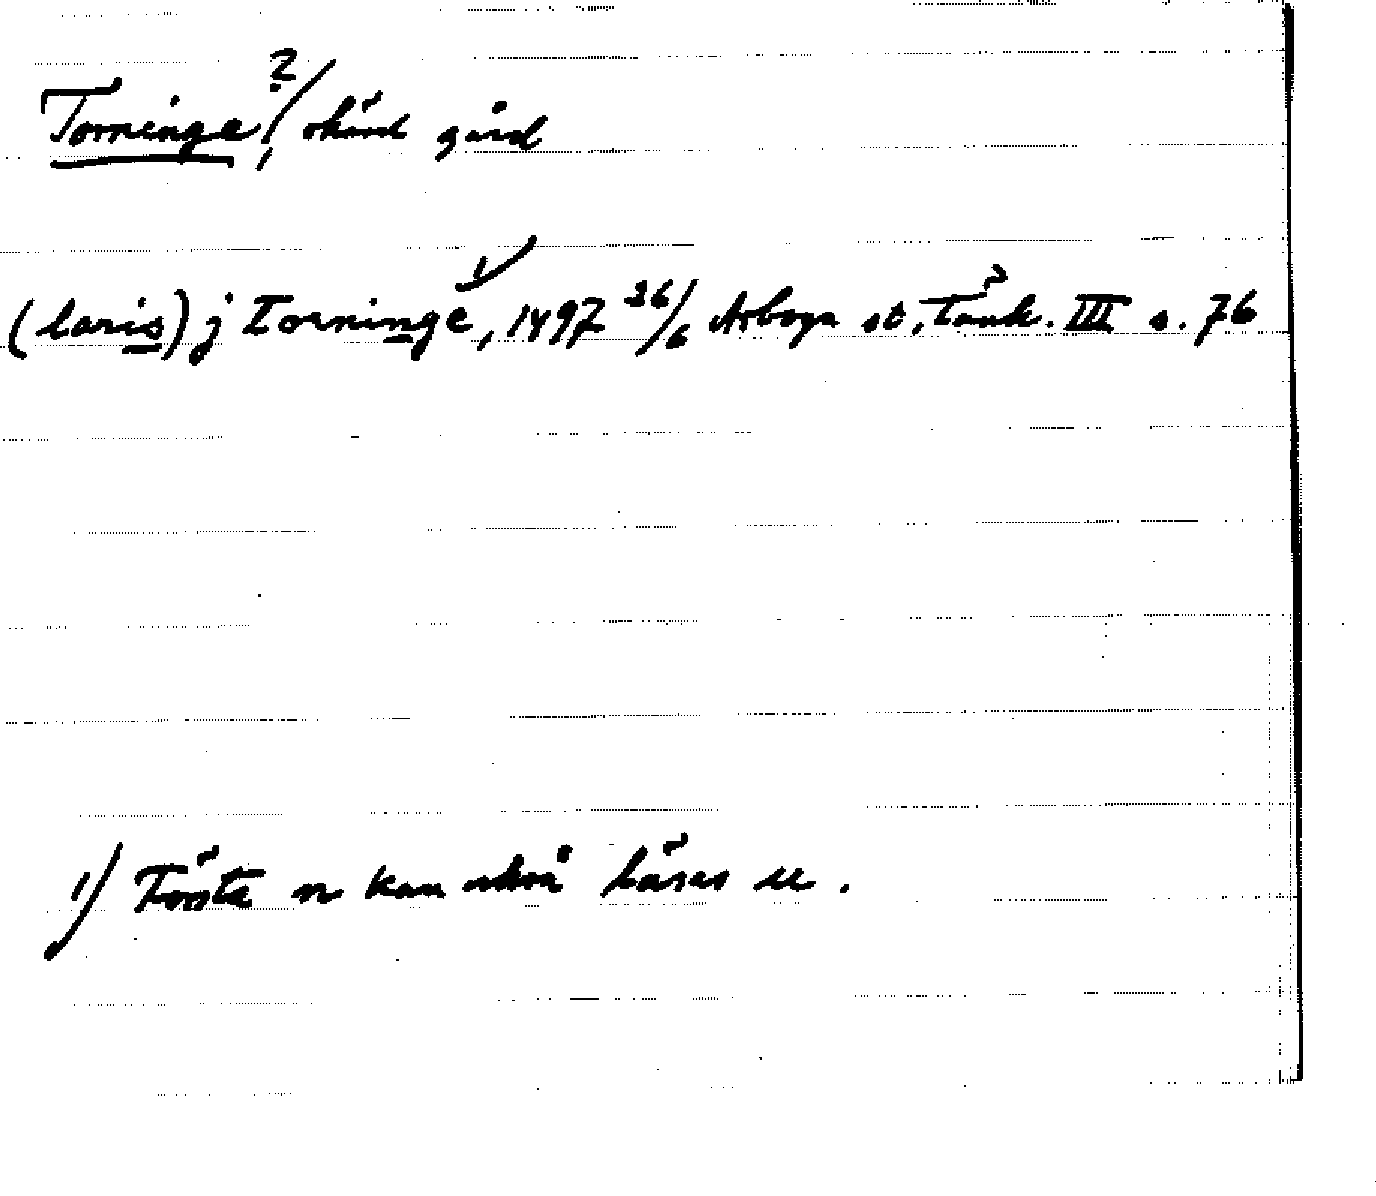 Torninge?/, okänd gård
(laris) j torninge 1), 1497 26/6 Arboga st. tänk. III s. 76
1) Första n kan också läsas u.